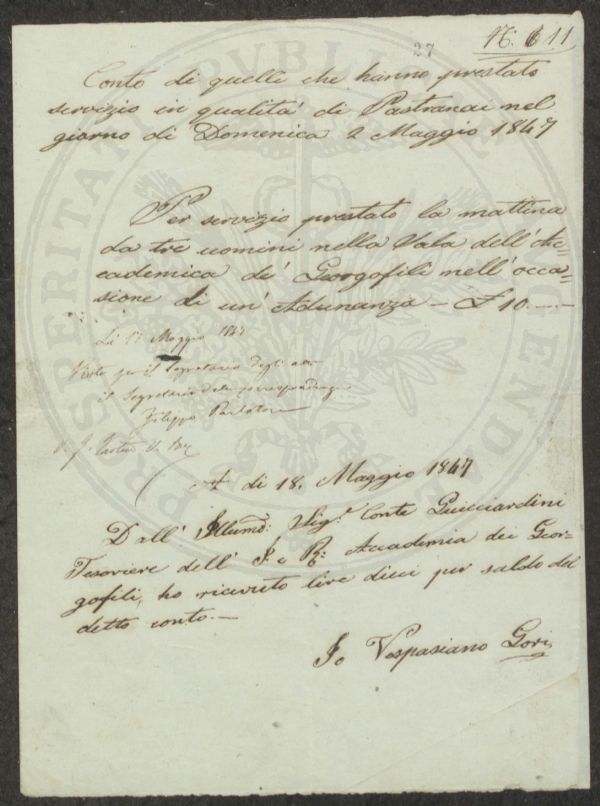 27
N: 611
Conto di quelli che hanno prestato
servizio in qualità di Pastranai nel
giorno di Domenica 2 Maggio 1847
Per servizio prestato la mattina
da tre uomini nella Sala dell'Ac=
cademica de' Georgofili nell'occa=
sione di un' Adunanza — £ 10.—
Li 17 Maggio 1847
Visto per il Segretario degli atti
il Segretario delle corrispondenze
Filippo Parlatore
A di 18. Maggio 1847
Dall' Illumo: Sigr. Conte Guicciardini
Tesoriere dell' I. e R: Accademia dei Geor=
gofili, ho ricevuto lire dieci per saldo del
detto conto.—
Io Vespasiano Gori
PROSPERITATI PUBLICAE AUGENDAE